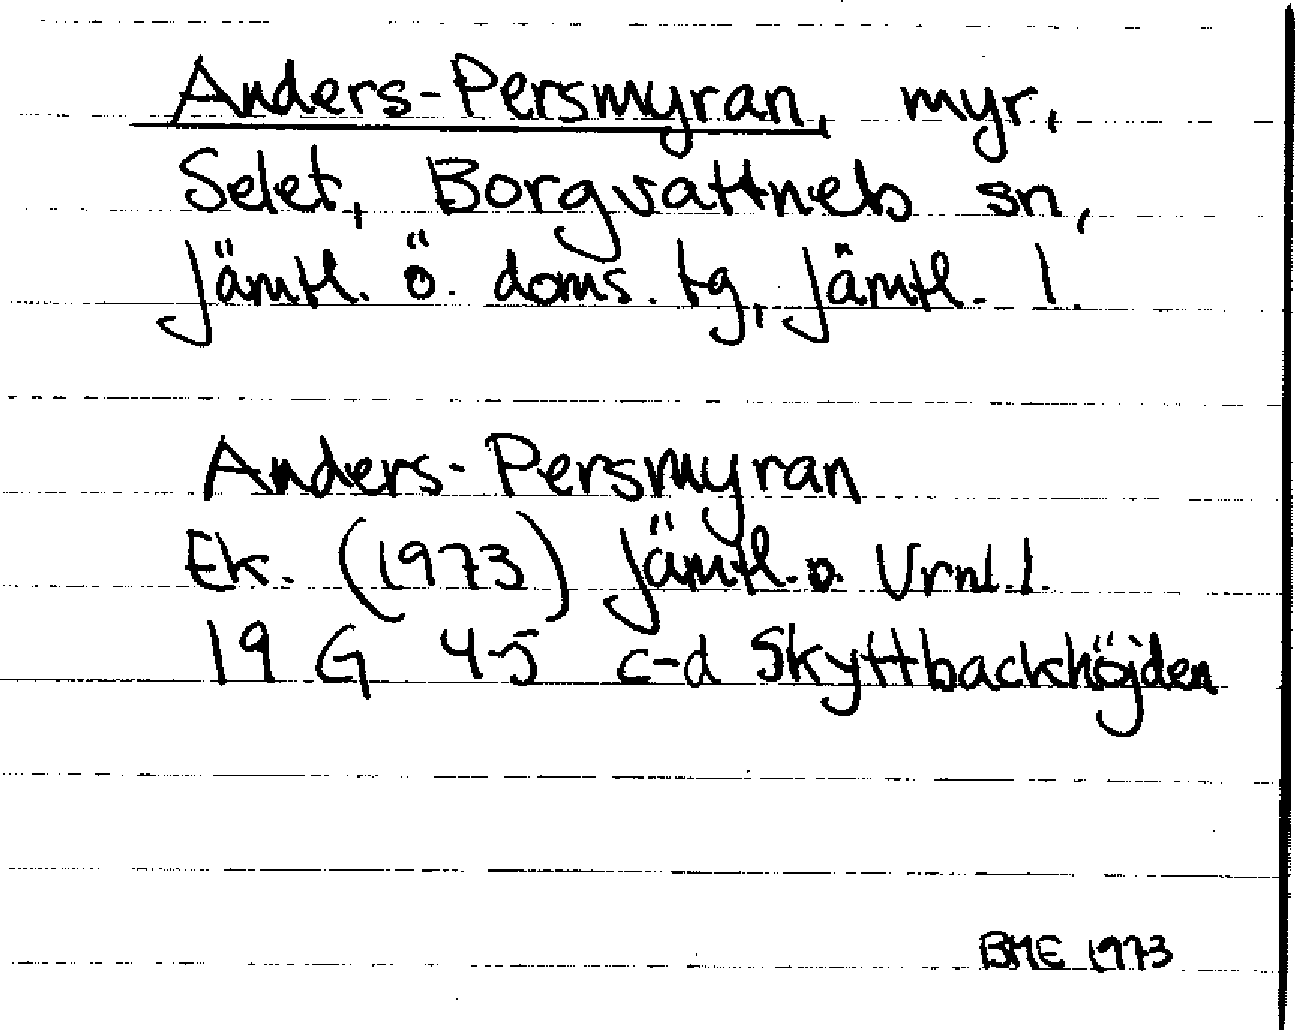 Anders-Persmyran, myr,
Selet, Borgvattnets sn,
Jämtl. ö. doms. tg, Jämtl. l.
Anders-Persmyran
Ek. (1973) Jämtl. o. Vrnl. l.
19 G 4-5 c-d Skyttbackhöjden
BME 1973